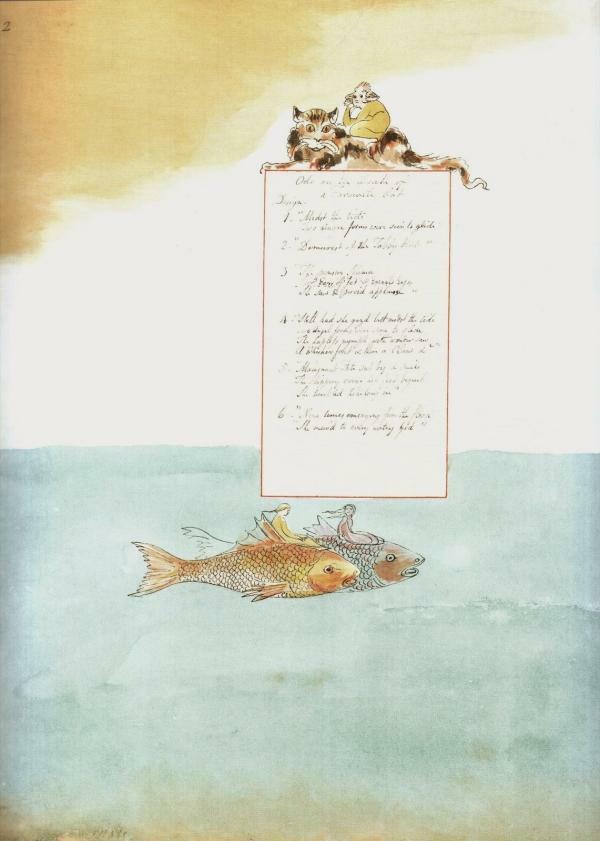 2
Ode on the Death of
a Favourite Cat
Design.
1. "Midst the tide
Two Angel forms were seen to glide"
2. "Demurest of the Tabby Kind "
3 "The pensive Selima
Her Ears of Jet & Emrald Eyes
She saw & purr'd applause "
4 "Still had she gazd but midst the tide
Two Angel forms were seen to glide.
The hapless nymph with wonder saw
A Whisker first & then a Claw &c"
5 "Malignant Fate sat by & smild
The slippery verge her feet beguild
She tumbled headlong in"
6 "Nine times emerging from the flood
She mewd to every watry God"